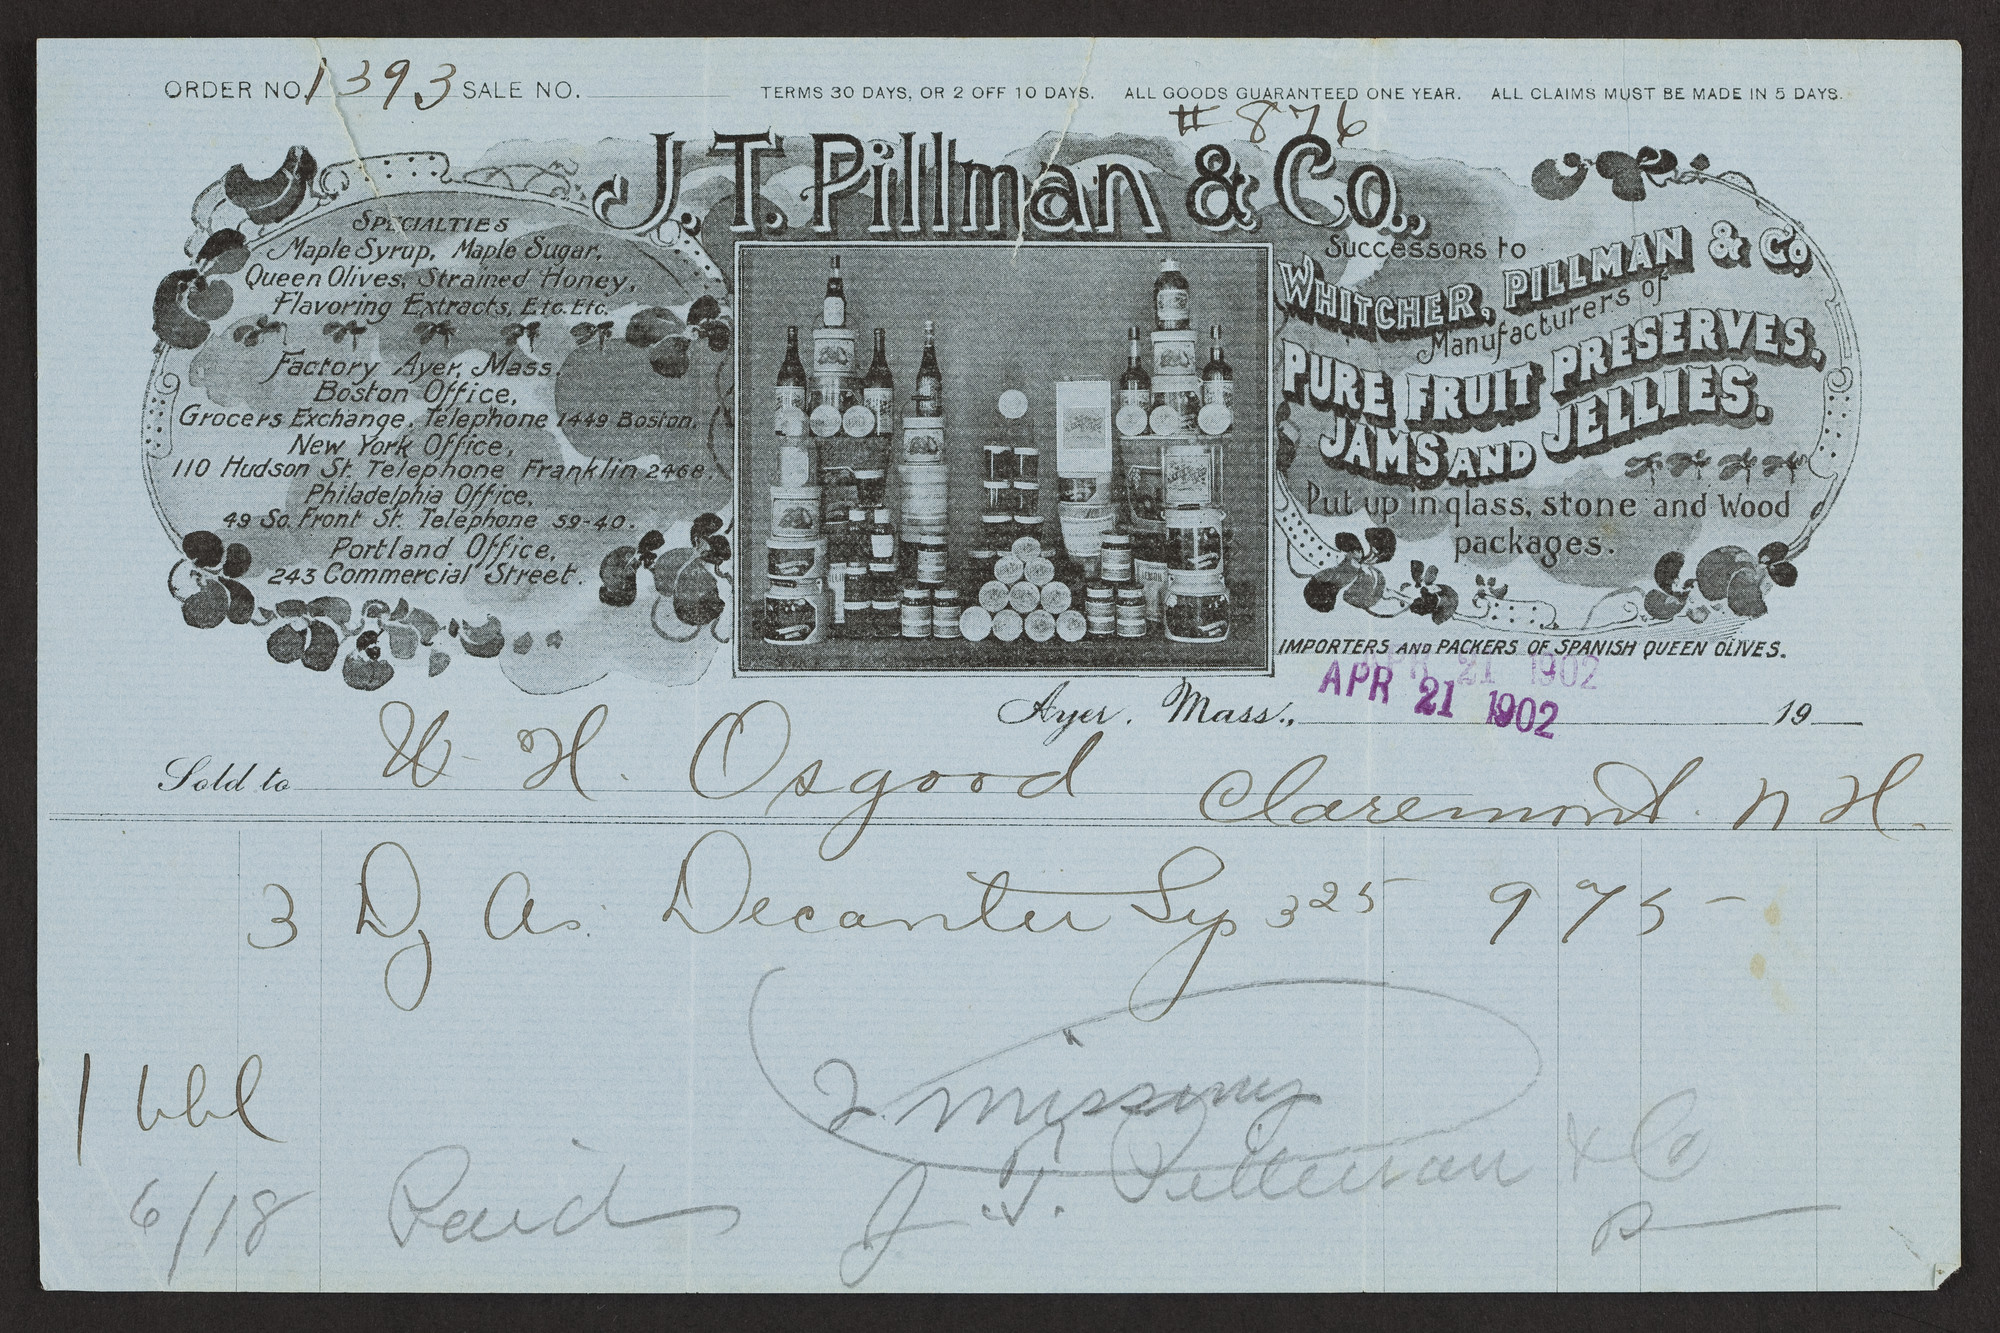 ORDER NO. 1393 SALE NO. TERMS 30 DAYS, OR 2 OFF 10 DAYS. ALL GOODS GUARANTEED ONE YEAR. ALL CLAIMS MUST BE MADE IN 5 DAYS.
# 876
J. T. Pillman & Co.,
SPECIALTIES
Maple Syrup, Maple Sugar,
Queen Olives, Strained Honey,
Flavoring Extracts, Etc. Etc.
Factory Ayer, Mass.
Boston Office,
Grocers Exchange, Telephone 1449 Boston.
New York Office,
110 Hudson St. Telephone Franklin 2468.
Philadelphia Office,
49 So. Front St. Telephone 59-40.
Portland Office,
243 Commercial Street.
Successors to
WHITCHER, PILLMAN & Co
Manufacturers of
PURE FRUIT PRESERVES,
JAMS AND JELLIES.
Put up in glass, stone and Wood
packages.
IMPORTERS AND PACKERS OF SPANISH QUEEN OLIVES.
APR 21 1902
APR 21 1902
Ayer, Mass., 19
Sold to W. H. Osgood Claremont. N H.
3 Dz As. Decanter Syp 325 975 -
2 missing
1 bbl
J. T. Pillman & Co
6/18 Paid